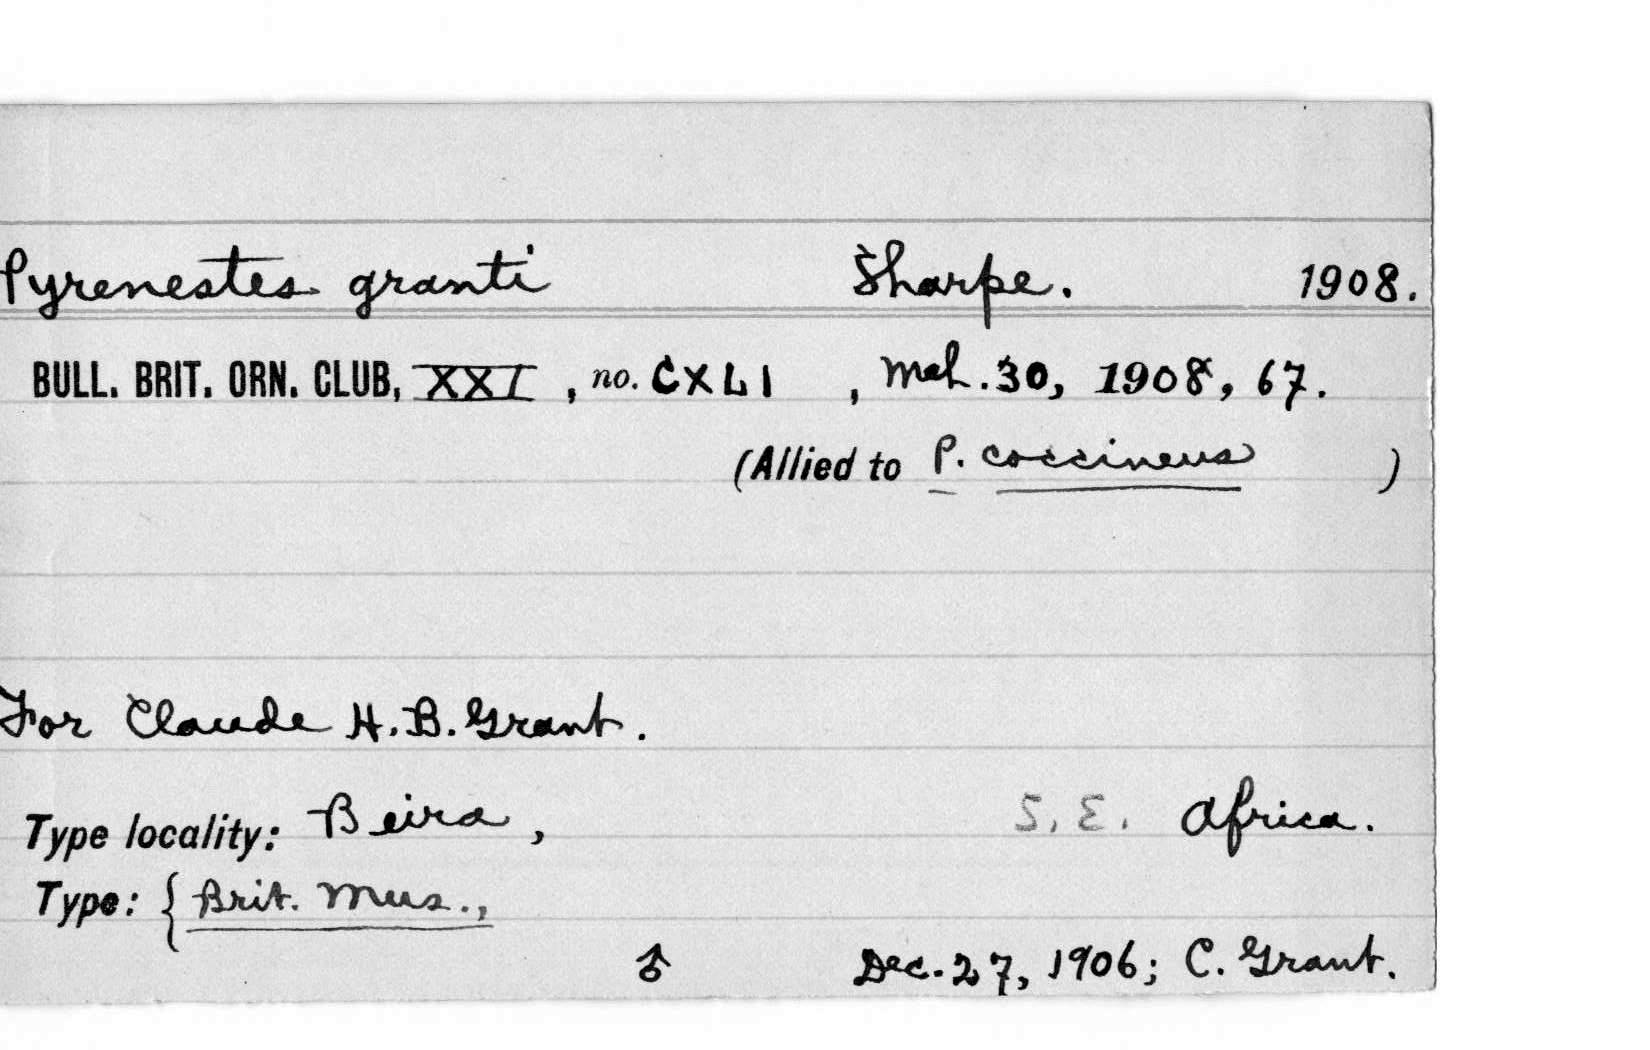 Pyrenestes granti Sharpe. 1908.
BULL. BRIT. ORN. CLUB, XXI, no. CXLI, Mch. 30, 1908, 67.
(Allied to P. coccineus)
For Claude H. B. Grant.
Type locality: Beira, S. E. Africa.
Type: { Brit. Mus.,
♂ Dec. 27, 1906; C. Grant.